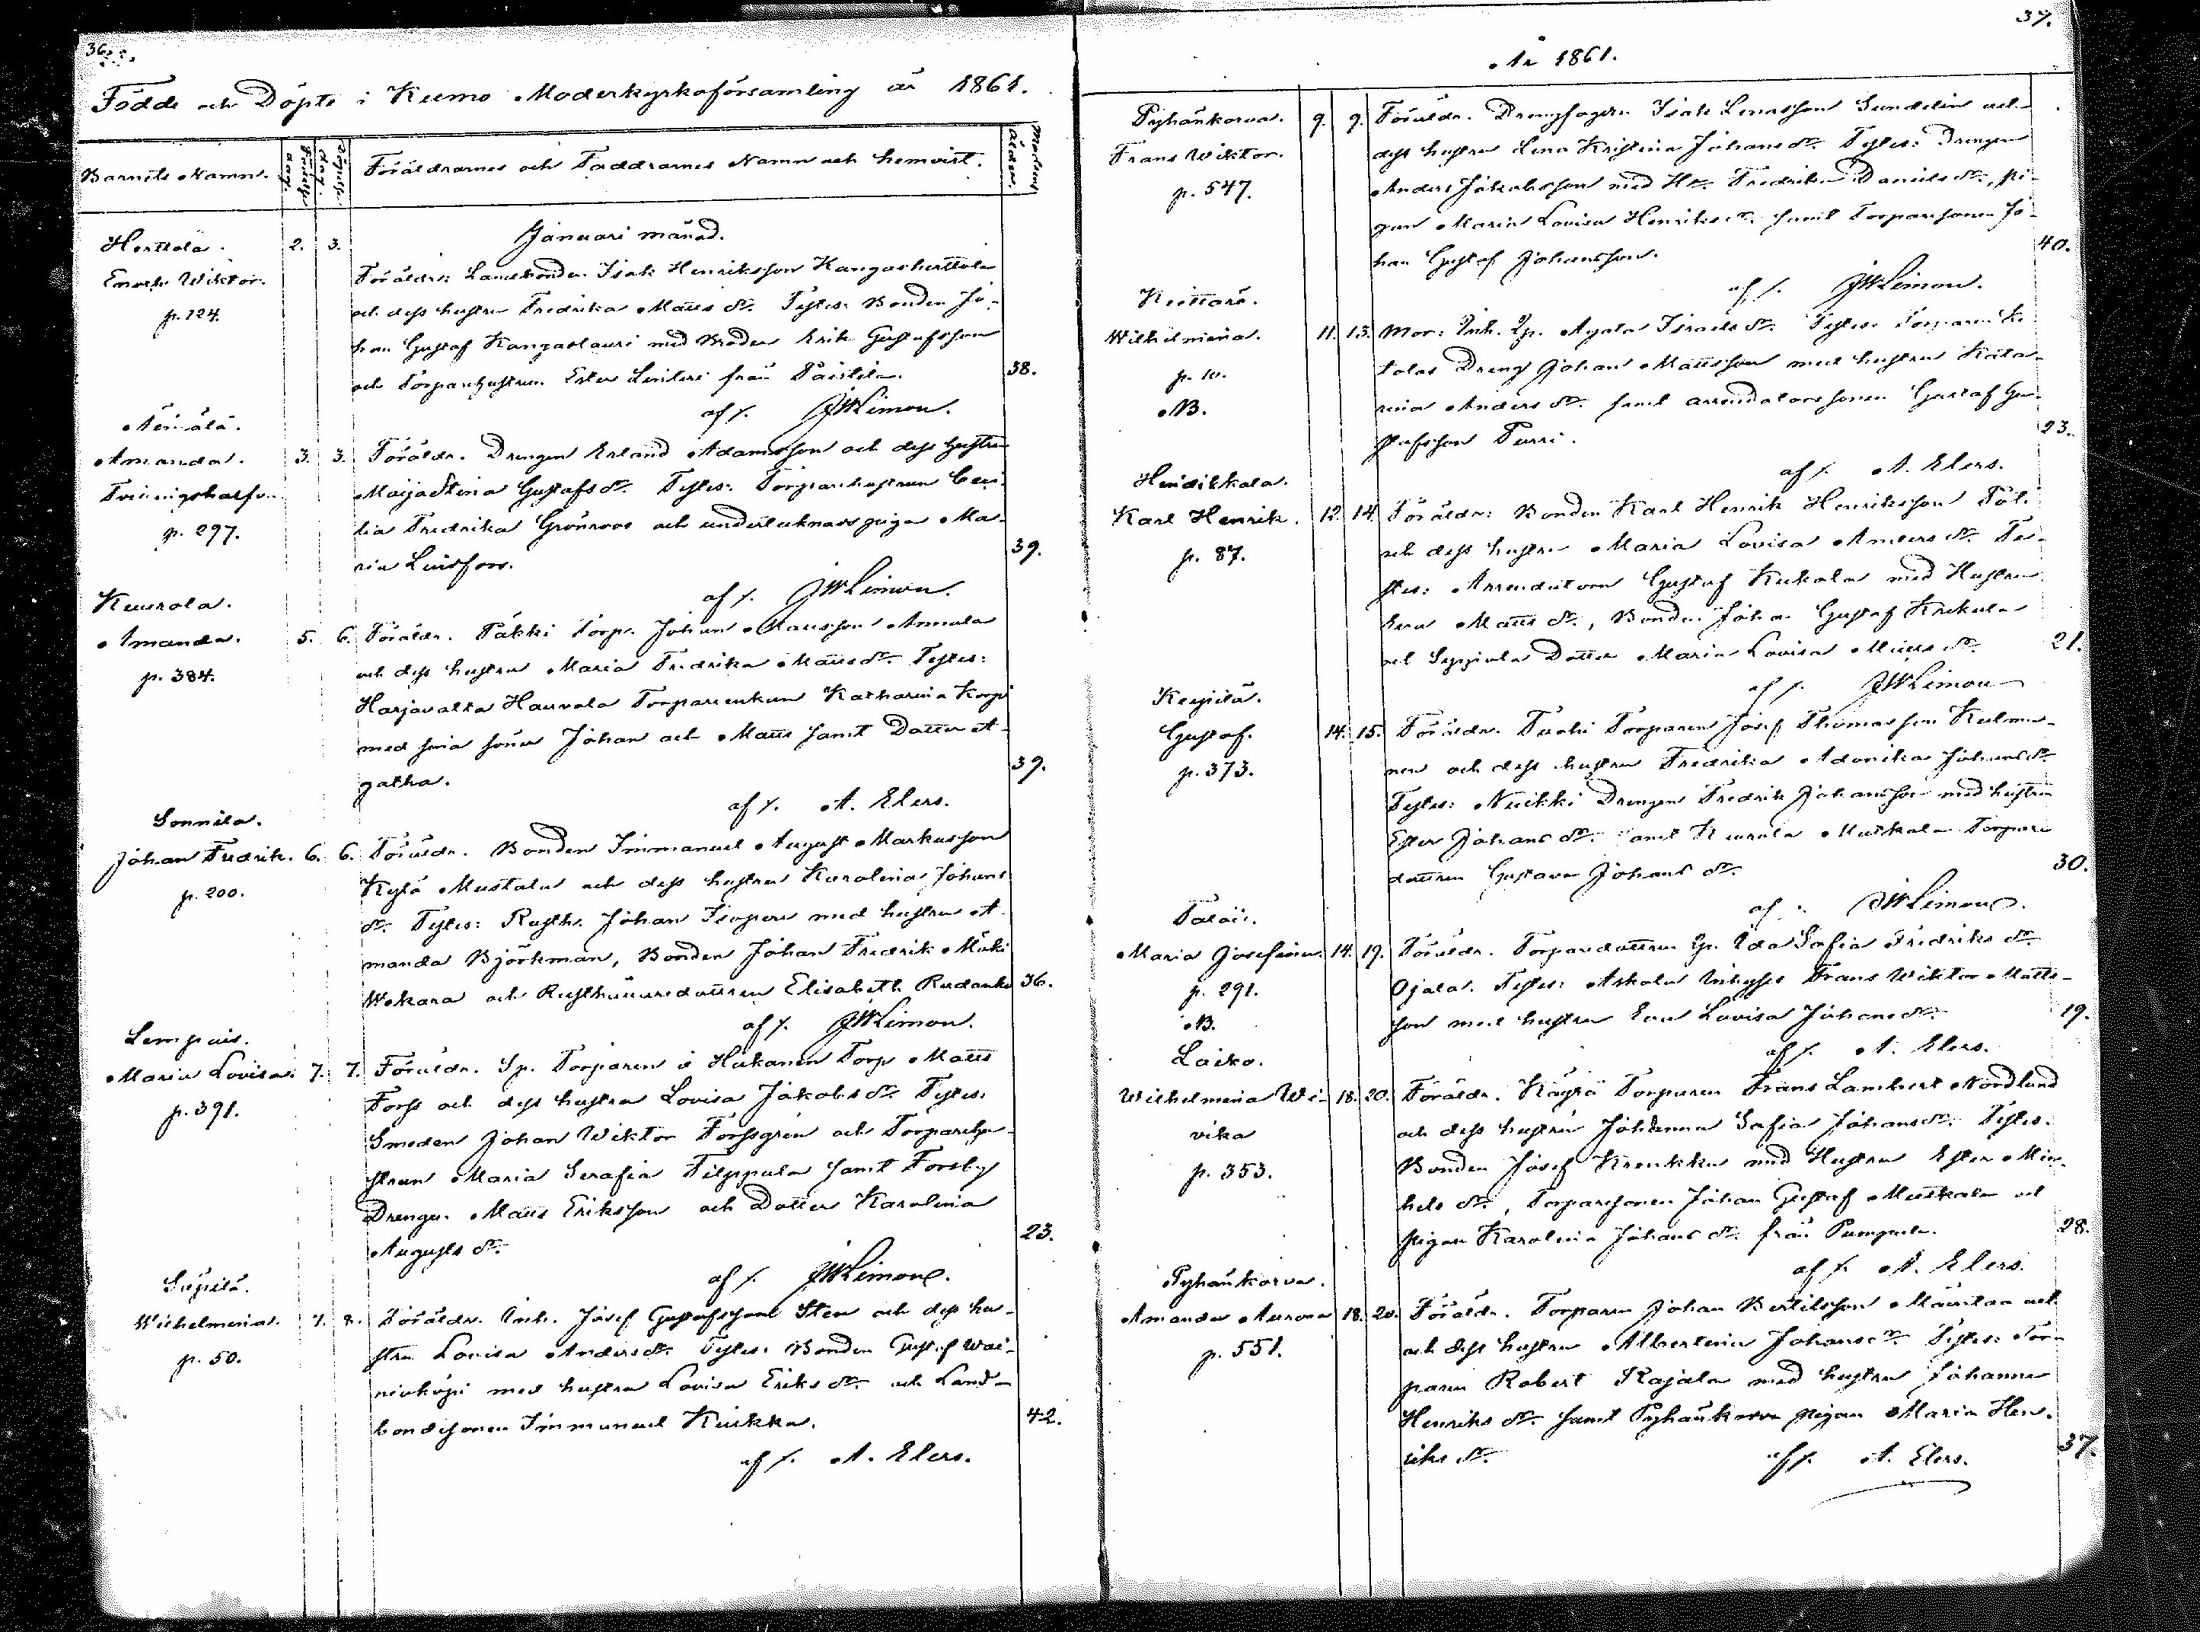 36.
Födde och Döpte i Kumo Moderkyrkoförsamling år 1861.
Barnets Namn.
Födelse dag.
dag.
Föräldrarnes och Faddrarnes Namn och hemvist.
Modrens ålder.
Januari månad.
Herttola.
2. 3.
Enoch Wiktor.
p. 124.
Föräldr: Landbonden Isak Henriksson Kangasherttola
och dess hustru Fredrika Matts dr. Testes: Bonden Jo-
han Gustaf Kangaslauri med Broder Erik Gustafsson
och Torparhustrun Ester från
38.
af s. JWLimon.
Amanda. 3. 3. Föräldr. Drengen Erland Adamsson och dess hustru
Tvillingshalfv.
p. 297.
Maja Stina Gustafs dr. Testes: Torparehustrun Ceci-
lia Fredrika Grönroos och piga Ma-
ria
39.
af s. JWLimon.
Kuurola.
Amanda. 5. 6. Föräldr. Päkki Torp. Johan Mattsson Annala
p. 384.
och dess hustru Maria Fredrika Matts dr. Testes:
Harjavalta Haurola Torpareenkan Katharina Korpi
med sina söner Johan och Matts samt Dotter A-
gatha.
39.
af s. A. Elers.
Sonnila.
Johan Fredrik. 6. 6. Föräldr. Bonden Immanuel August Markusson
p. 200.
Kylä Mustala och dess hustru Karolina Johans
dr. Testes: Rusth. Johan Isopere med hustru A-
manda Björkman, Bonden Johan Fredrik Mäki
Wokara och Rusthållaredottren Elisabeth Rudanko 36.
af s. JWLimon.
Lempais.
Maria Lovisa. 7. 7. Föräldr. Sp. Torparen å Hakanen Torp Matts
p. 391.
Forss och dess hustru Lovisa Jakobs dr. Testes:
Smeden Johan Wiktor Forssgren och Torparehu-
strun Maria Serafia Filppula samt Forsby
Drengen Matts Eriksson och Dotter Karolina
Augusts dr.
23.
af s. JWLimon.
Säpilä.
Wilhelmina. 7. 8. Föräldr. Inh. Josef Gustafsson Sten och dess hu-
p. 50.
stru Lovisa Anders dr. Testes: Bonden Gustaf Wai-
med hustru Lovisa Eriks dr. och Land-
bondesonen Immanuel Kuukka.
42.
af s. A. Elers.
37.
År 1861.
Pyhänkorva. 9. 9. Föräldr. Drengfogden Isak Sundelin och
Frans Wiktor.
p. 547.
dess hustru Lena Kristina Johans dr. Testes: Drengen
Anders Jakobsson med Hu. Fredrika Daniels dr., pi-
gan Maria Lovisa Henriks dr. samt Torparsonen Jo-
han Gustaf Johansson.
40.
af s. JWLimon.
Wilhelmina. 11. 13. Mor: Inh. Qp. Agata Israels dr. Testes:
p. 10.
NB.
Dreng Johan Mattsson med hustru Kata-
rina Anders dr. samt arrendatorssonen Gustaf Gu-
stafsson Purri.
23.
af s. A. Elers.
Karl Henrik. 12. 14. Föräldr: Bonden Karl Henrik Henriksson
p. 87.
och dess hustru Maria Lovisa Anders dr. Te-
stes: Arrendatorn Gustaf Kukola med Hustru
Eva Matts dr., Bonden Johan Gustaf
och Seppäla Dotter Maria Lovisa Matts dr.
21.
af s. JWLimon
Gustaf. 14. 15. Föräldr. Torparen Josef Thomasson Kulma-
p. 373.
nen och dess hustru Fredrika Adonika Johans dr.
Testes: Nuikki Drengen Fredrik Johansson med hustru
Ester Johans dr. samt Kuurola Mutkala Torpare
dottren Gustava Johans dr.
30.
af s. JWLimon.
Maria Josefina. 14. 19. Föräldr. Torparedottren Qp. Ida Sofia Fredriks dr.
p. 291.
NB.
Ojala. Testes: Askola Inhyses Frans Wiktor Matts-
son med hustru Eva Lovisa Johans dr.
19.
af s. A. Elers.
Laiko.
Wilhelmina Wi- 18. 20. Föräldr. Torparen Frans Lambert Nordlund
vika
p. 353.
och dess hustru Johanna Sofia Johans dr. Testes.
Bonden Josef Krenkku med Hustru Ester Mic-
hels dr., Torparesonen Johan Gustaf Mutkala och
pigan Karolina Johans dr. från
28.
af s. A. Elers.
Pyhänkorva.
Amanda Aurora 18. 20. Föräldr. Torparen Johan Bertilsson och
p. 551.
och dess hustru Albertina Johans dr. Testes: Tor-
paren Robert Rajala med hustru Johanna
Henriks dr. samt Pyhänkorva pigan Maria Hen-
riks dr.
37.
af s. A. Elers.